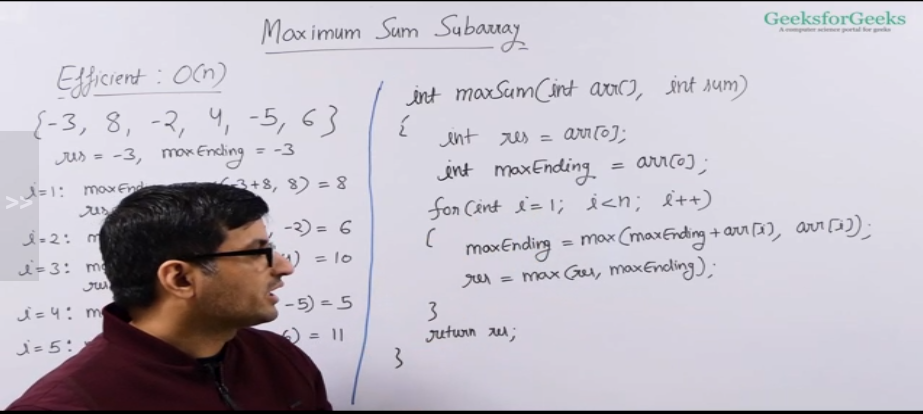 GeeksforGeeks
A computer science portal for geeks
Maximum Sum Subarray
Efficient : O(n)
{-3, 8, -2, 4, -5, 6}
res = -3, maxEnding = -3
i=1: maxEnd 3+8, 8) = 8
res
i=2: -2) = 6
i=3: ) = 10
i=4: -5) = 5
i=5: 6) = 11
int maxSum(int arr[], int sum)
{
int res = arr[0];
int maxEnding = arr[0];
for(int i=1; i<n; i++)
{ maxEnding = max(maxEnding+arr[i], arr[i]);
res = max(res, maxEnding);
}
return res;
}
>>